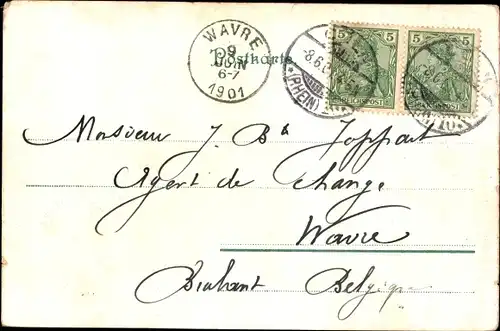 WAVRE
9
JUIN
6-7
1901
Postkarte
5 5 5
REICHSPOST
-8.6.
(RHEIN)
Monsieur J. Bte Joppart
Agent de Change
Wavre
Brabant Belgique